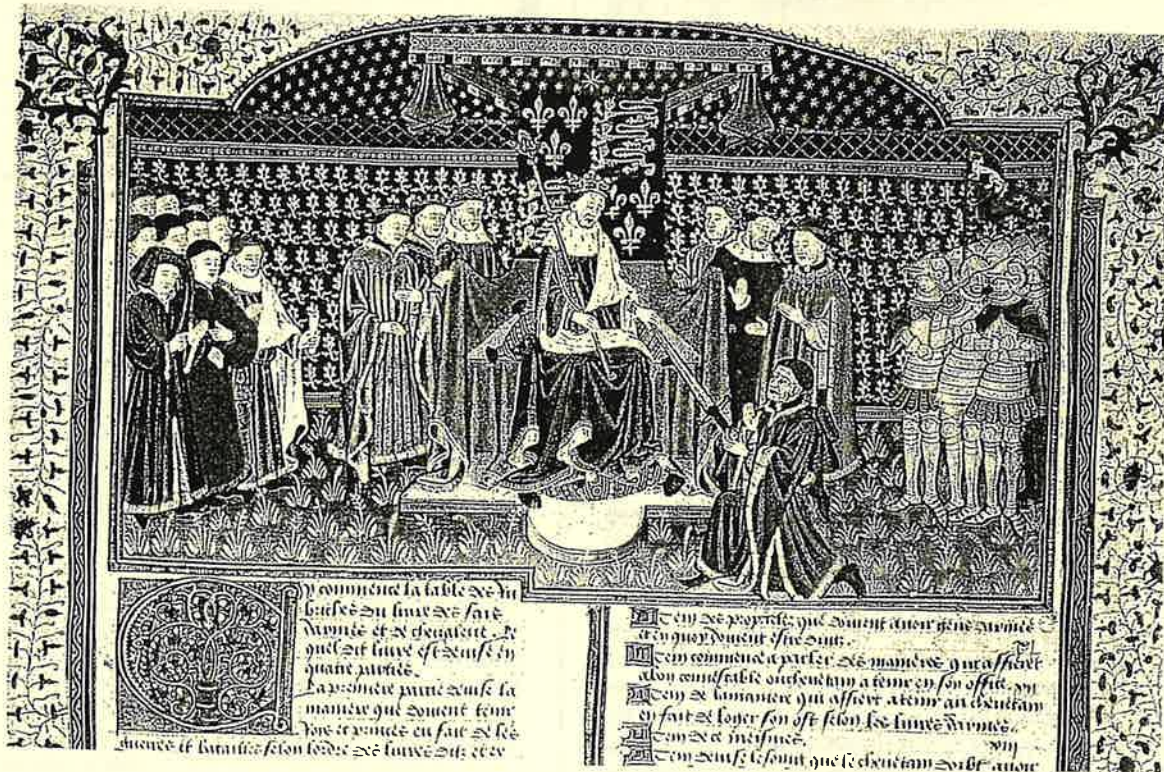 Cy commence la table des ru
briches du livre des fais
darmes et de chevalerie. le
quel dit livre est devise en
quatre parties.
La premiere partie devise la
maniere que doivent tenir
Roys et princes en fait de les
guerres et batailles selon lordre des livres ditz et ex
Item des proprietez que doivent avoir gens darmes
et en quoy doivent estre duitz.
Item commence a parler des manieres qui affierent
a bon connestable ou chevetain a tenir en son office. xij
Item de la maniere qui affiert a tenir au chevetain
en fait de loger son ost selon les livres darmes.
Item de ce mesmes. xiij
Item devise le soing que le chevetain doibt avoir